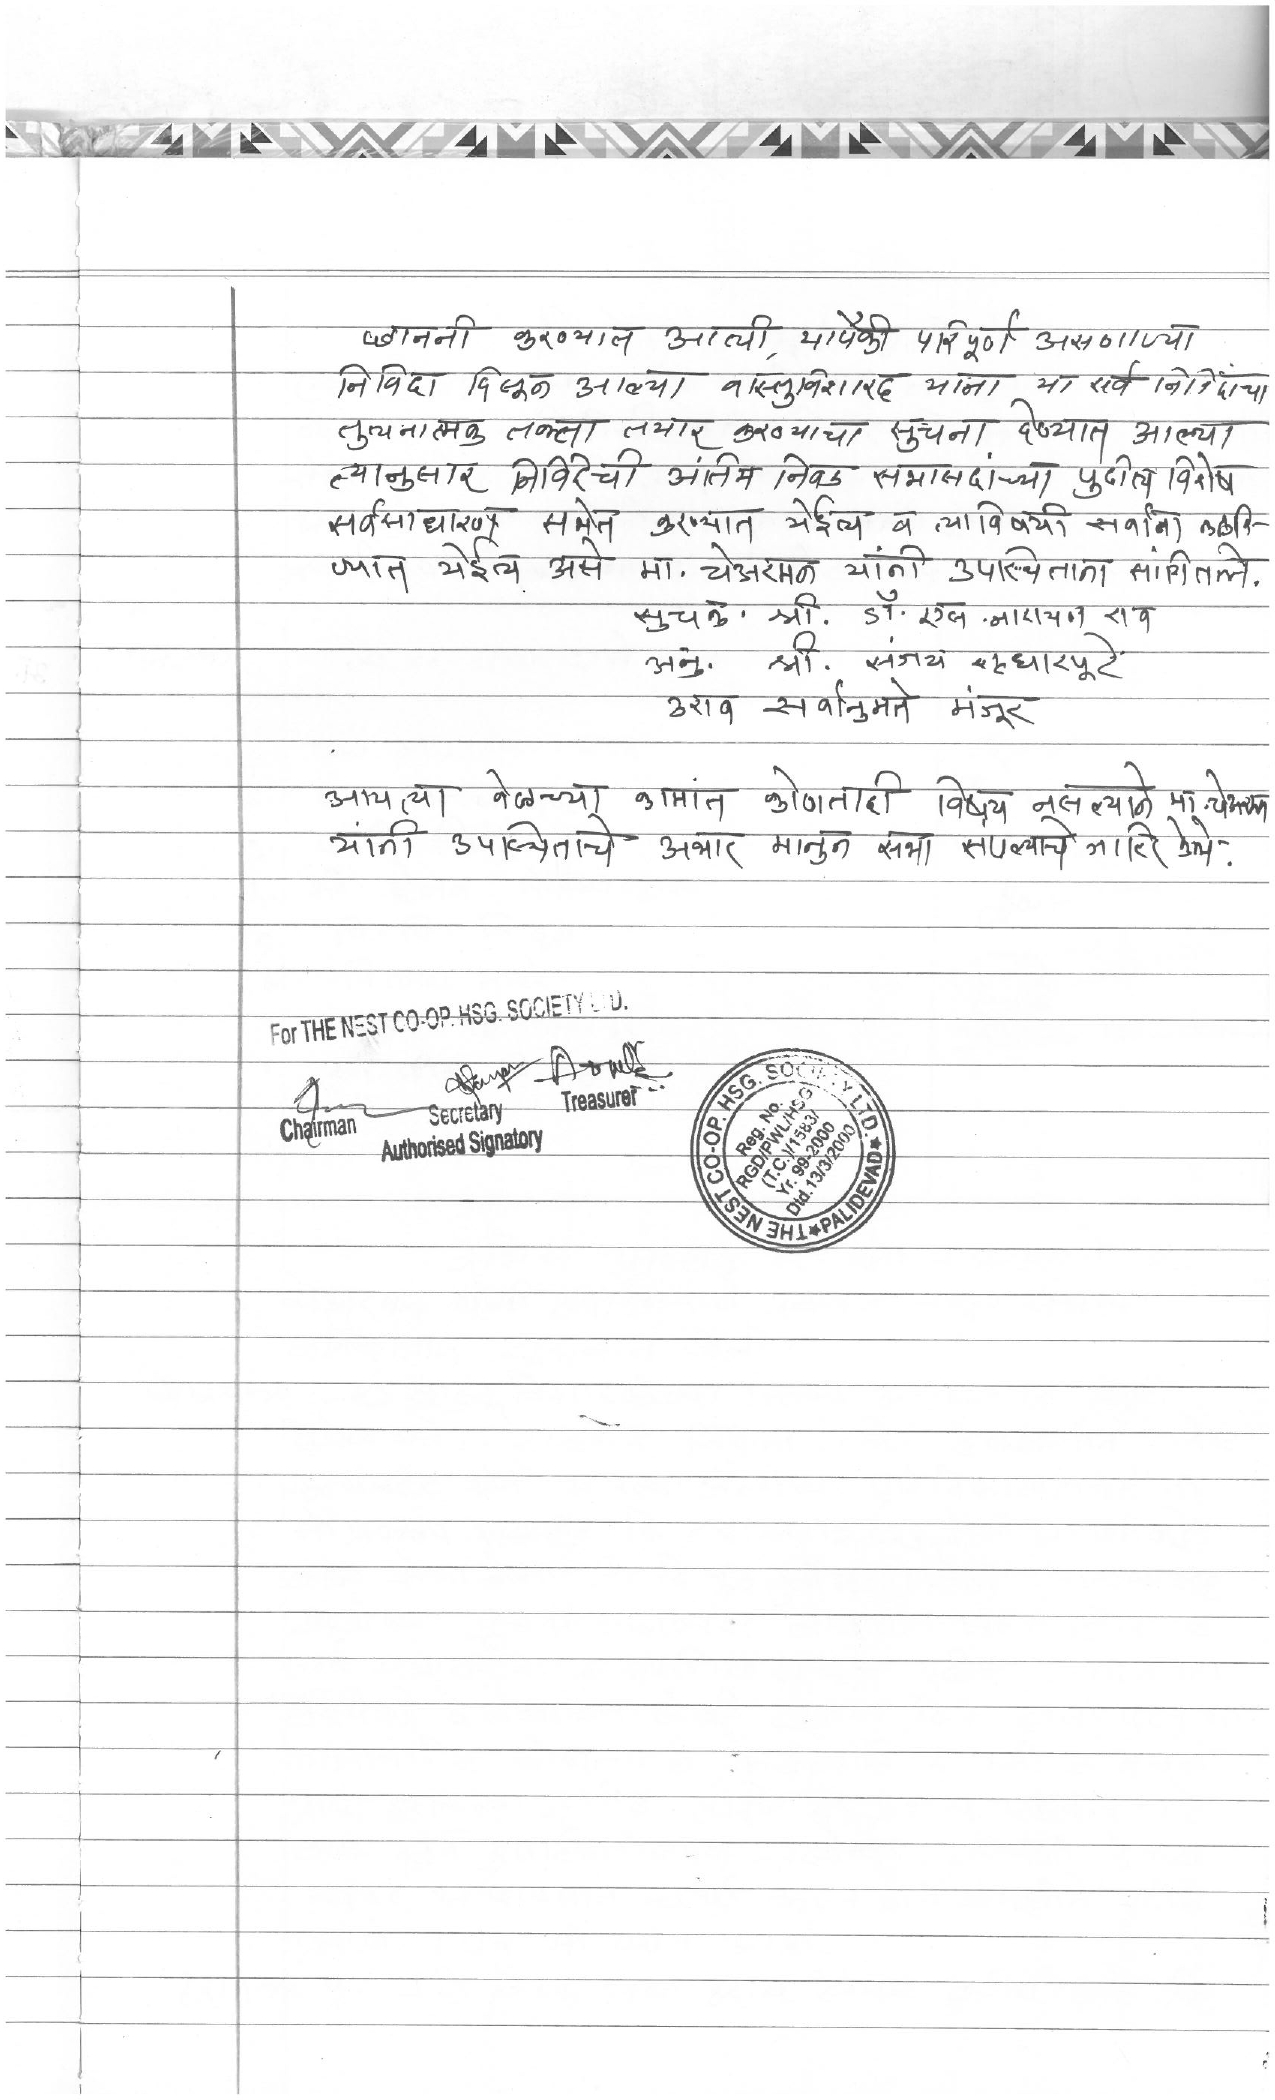 छाननी करण्यात आली, यापैकी परिपूर्ण असणाऱ्या
निविदा दिसून आल्या वास्तुविशारद यांना या सर्व निविदांचा
तुलनात्मक तक्ता तयार करण्याचा सुचना देण्यात आल्या
त्यानुसार निविदेची अंतिम निवड सभासदांच्या पुढील विशेष
सर्वसाधारण सभेत करण्यात येईल व त्याविषयी सर्वांना कळवि-
ण्यात येईल असे मा. चेअरमन यांनी उपस्थितांना सांगितले.
सुचक. श्री. डॉ. एल. नारायण राव
अनु. श्री. संजय
ठराव सर्वानुमते मंजूर
आयत्या वेळच्या कामांत कोणताही विषय नसल्याने मा. चेअरमन
यांनी उपस्थितांचे आभार मानुन सभा संपल्याचे जाहिर केले.
For THE NEST CO-OP. HSG. SOCIETY LTD.
Chairman Secretary Treasurer
Authorised Signatory
THE NEST CO-OP. HSG. SOCIETY LTD. ★ PALIDEVAD ★
Reg. No.
RGD/PWL/HSG
(T.C.)/1583/
Yr. 99-2000
Dtd. 13/3/2000